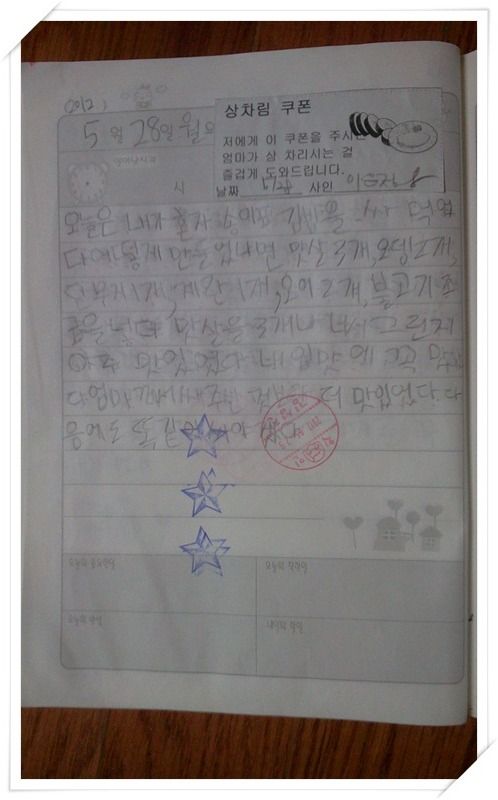 2012
5월 28일 월요
상차림 쿠폰
저에게 이 쿠폰을 주시면
엄마가 상 차리시는 걸
즐겁게 도와드립니다.
날짜 5/28 사인
일어난시각
시
오늘은 내가 혼자 김밥을 싸 먹었
다 어떻게 만들었냐면 맛살 3개, 오뎅 1개,
단무지 1개, 계란 1개, 오이 2개, 불고기 조
금을 넣다 맛살을 3개나 너서 그런지
아주 맛있었다 내 입맛에 꼭
다 엄마 더 맛있었다. 다
음에도 똑같이
오늘의 중요한일
오늘의 착한일
오늘의 반성
내일의 할일